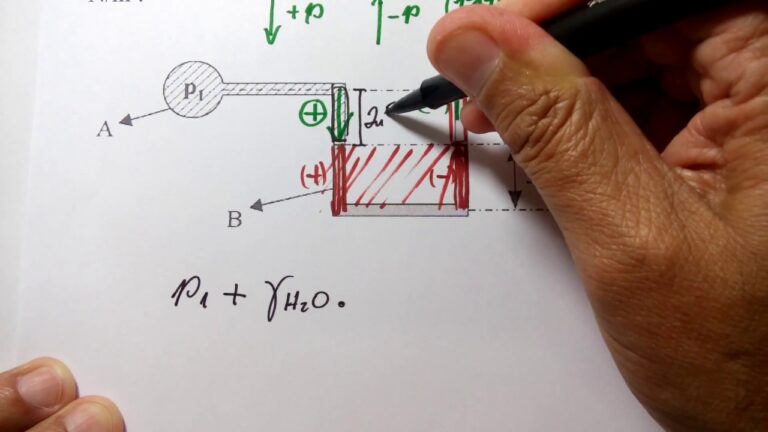 +p -p
p₁
A
(+)
(+) (-)
B
p₁ + γH₂O .